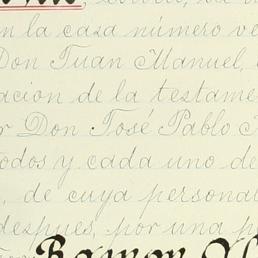 en la casa número
Don Juan Manuel,
ación de la
r Don José Pablo
todos y cada uno de
, de cuya
después, por una
Ramon